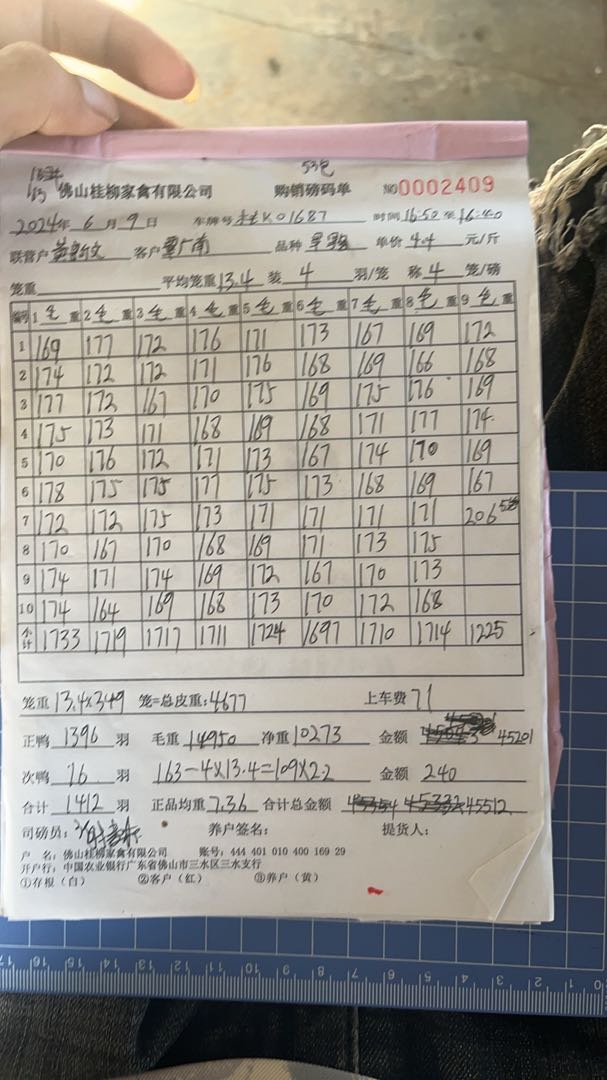 53包
佛山桂柳家禽有限公司 购销磅码单 №0002409
2024年 6 月 9 日 车牌号 桂K01687 时间 16:52 至 16:40
联营户 客户 广南 品种 单价 4.4 元/斤
笼重 平均笼重 13.4 装 4 羽/笼 称 4 笼/磅
编号 1 毛 重 2 毛 重 3 毛 重 4 毛 重 5 毛 重 6 毛 重 7 毛 重 8 毛 重 9 毛 重
1 169 177 172 176 171 173 167 169 172
2 174 172 172 171 176 168 169 166 168
3 177 172 167 170 175 169 175 176 169
4 175 173 171 168 169 168 171 177 174
5 170 176 172 171 173 167 174 170 169
6 178 175 175 177 175 173 168 169 167
7 172 172 175 173 171 171 171 171 206
8 170 167 170 168 169 171 173 175
9 174 171 174 169 172 167 170 173
10 174 164 169 168 173 170 172 168
小计 1733 1719 1717 1711 1724 1697 1710 1714 1225
笼重 13.4×349 笼=总皮重: 4677 上车费 71
正鸭 1396 羽 毛重 14950 净重 10273 金额 45201
次鸭 16 羽 163-4×13.4=109×2.2 金额 240
合计 1412 羽 正品均重 7.36 合计总金额 45512
司磅员: 养户签名: 提货人:
户 名: 佛山桂柳家禽有限公司 账号: 444 401 010 400 169 29
开户行: 中国农业银行广东省佛山市三水区三水支行
①存根（白） ②客户（红） ③养户（黄）
17 16 15 14 13 12 11 10 9 8 7 6 5 4 3 2 1 0